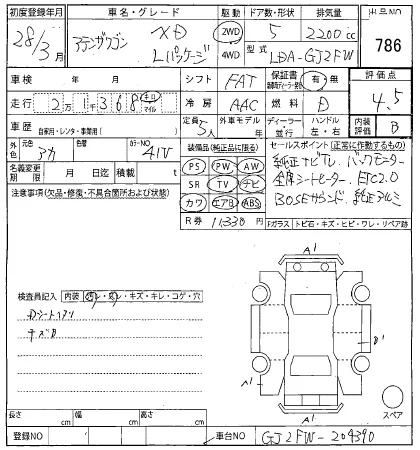 初度登録年月 車名・グレード 駆動 ドア数・形状 排気量 出品NO
28年 3月 アテンザワゴン XD Lパッケージ 2WD 4WD 5 2200cc 786
型式 LDA-GJ2FW
車検 年 月 シフト FAT 保証書 有・無 評価点 4.5
走行 2万1千368 キロ マイル 冷房 AAC 燃料 D
車歴 自家用・レンタ・事業用( ) 定員 5人 外車モデル 年 ディーラー 並行 ハンドル 左・右 内装評価 B
外色 元色 アカ 色 カラーNO 41V 装備品(純正品に限る) セールスポイント(正常に作動するもの)
名義変更期限 月 日迄 積載 t PS PW AW 純正ナビTV. バックモニター
注意事項(欠品・修復・不具合箇所および状態) SR TV ナビ 全席シートヒーター. ETC2.0
カワ エアB ABS BOSEサウンド. 純正アルミ
R券 11,330円 Fガラス トビ石・キズ・ヒビ・ワレ・リペア跡
A1
検査員記入 内装 汚レ・スレ・キズ・キレ・コゲ・穴
キズB
B1
A1
A1
スペア
長さ cm 幅 cm 高さ cm
登録NO 車台NO GJ2FW-204390